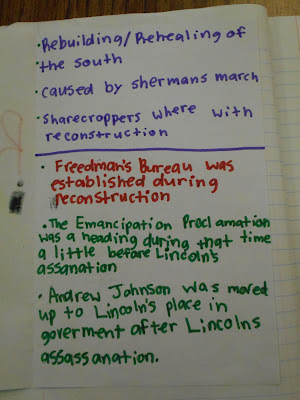 • Rebuilding/Rehealing of
• the south
• caused by shermans march
• Sharecroppers where with
reconstruction
• Freedman's Bureau was
established during
reconstruction
• The Emancipation Proclamation
was a heading during that time
a little before Lincoln's
assanation
• Andrew Johnson was moved
up to Lincoln's place in
goverment after Lincolns
assassanation.